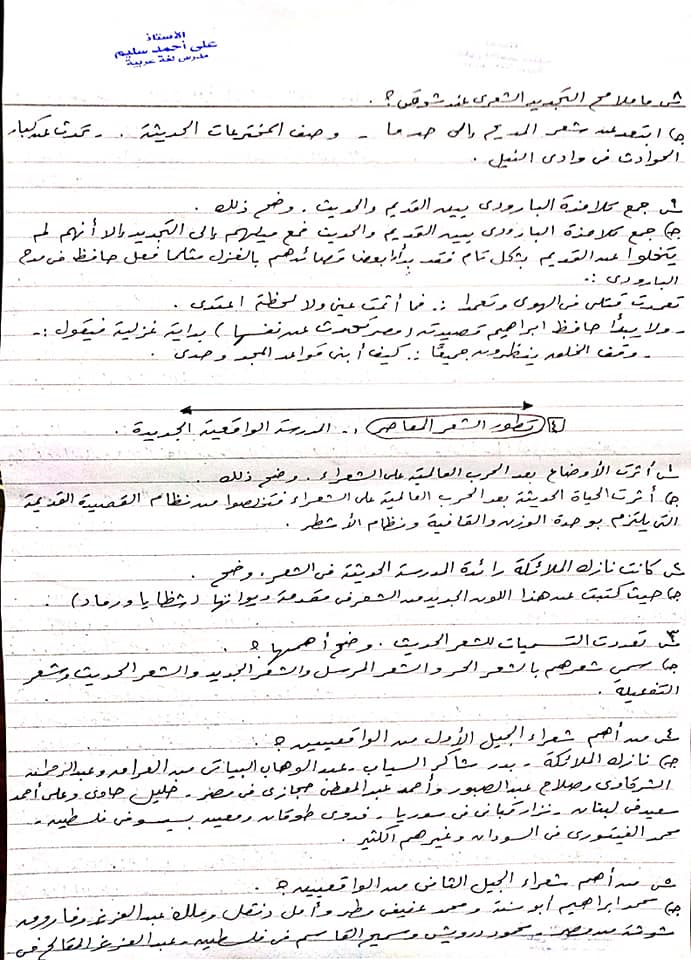 الأستاذ
على أحمد سليم
مدرس لغة عربية
س ما ملامح التجديد الشعرى عند شوقى ؟ .
جـ) ابتعد عن شعر المديح إلى حد ما - وصف المخترعات الحديثة . - تحدث عن كبار
الحوادث فى وادى النيل .
س جمع تلامذة البارودى بين القديم والحديث . وضح ذلك .
جـ) جمع تلامذة البارودى بين القديم والحديث فمع ميلهم إلى التجديد إلا أنهم لم
يتخلوا عن القديم بشكل تام فقد بدأوا بعض قصائدهم بالغزل مثلما فعل حافظ فى مدح
البارودى :.
تعمدت قتلى فى الهوى وتعمدا :. فما أثمت عينى ولا لحظه اعتدى .
- ولا يبدأ حافظ ابراهيم قصيدته (مصر تتحدث عن نفسها) بداية غزلية فيقول :-
- وقف الخلق ينظرون جميعًا :. كيف أبنى قواعد المجد وحدى .
٤ تطور الشعر المعاصر :- المدرسة الواقعية الجديدة .
س١ أثرت الأوضاع بعد الحرب العالمية على الشعراء . وضح ذلك .
جـ) أثرت الحياة الحديثة بعد الحرب العالمية على الشعراء فتخلصوا من نظام القصيدة القديمة
التى يلتزم بوحدة الوزن والقافية ونظام الأشطر .
س٢ كانت نازك الملائكة رائدة المدرسة الحديثة فى الشعر . وضح .
جـ) حيث كتبت عن هذا اللون الجديد من الشعر فى مقدمة ديوانها (شظايا ورماد) .
س٣ تعددت التسميات للشعر الحديث . وضح أهمها ؟ .
جـ) سمى شعرهم بالشعر الحر والشعر المرسل والشعر الجديد والشعر الحديث وشعر
التفعيلة .
س٤ من أهم شعراء الجيل الأول من الواقعيين ؟ .
جـ) نازك الملائكة - بدر شاكر السياب - عبد الوهاب البياتى من العراق وعبد الرحمن
الشرقاوى وصلاح عبد الصبور وأحمد عبد المعطى حجازى فى مصر - خليل حاوى وعلى أحمد
سعيد فى لبنان - نزار قبانى فى سوريا - فدوى طوقان ومعين بسيسو فى فلسطين -
محمد الفيتورى فى السودان وغيرهم الكثير .
س٥ من أهم شعراء الجيل الثانى من الواقعيين ؟ .
جـ) محمد ابراهيم أبو سنة ومحمد عفيفى مطر وأمل دنقل وملك عبد العزيز وفاروق
شوشة من مصر - محمود درويش وسميح القاسم فى فلسطين - عبد العزيز المقالح فى